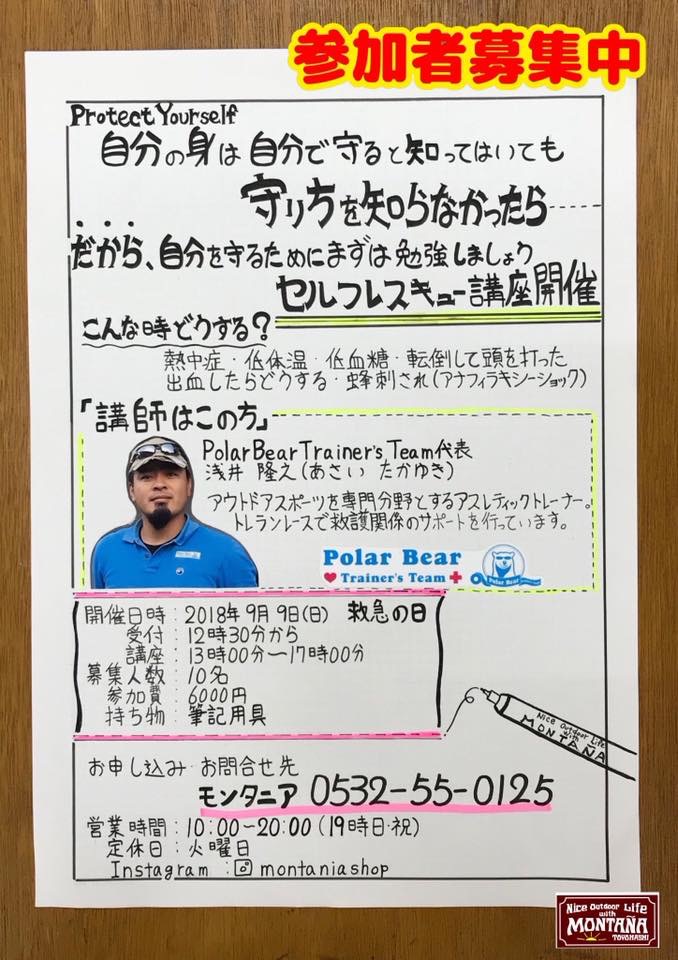 参加者募集中
Protect Yourself
自分の身は自分で守ると知ってはいても
守りちを知らなかったら
だから、自分を守るためにまずは勉強しましょう
セルフレスキュー講座開催
こんな時どうする?
熱中症・低体温・低血糖・転倒して頭を打った
出血したらどうする・蜂刺され(アナフィラキシーショック)
「講師はこの方」
Polar Bear Trainer's Team代表
浅井 隆之(あさい たかゆき)
アウトドアスポーツを専門分野とするアスレティックトレーナー。
トレランレースで救護関係のサポートを行っています。
Polar Bear
Trainer's Team
Polar Bear
開催日時:2018年9月9日(日) 救急の日
受付:12時30分から
講座:13時00分〜17時00分
募集人数:10名
参加費:6000円
持ち物:筆記用具
Nice Outdoor Life
with
MONTAÑA
お申し込み・お問合せ先
モンタニア 0532-55-0125
営業時間:10:00〜20:00(19時日・祝)
定休日:火曜日
Instagram: montaniashop
Nice Outdoor Life
with
MONTAÑA
TOYOHASHI